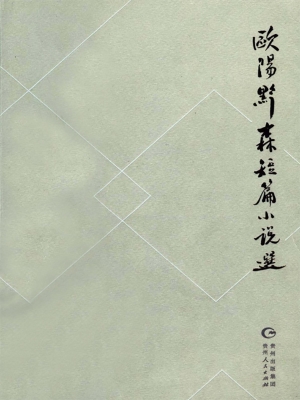 歐陽黔森短篇小说選
贵州出版集团
贵州人民出版社